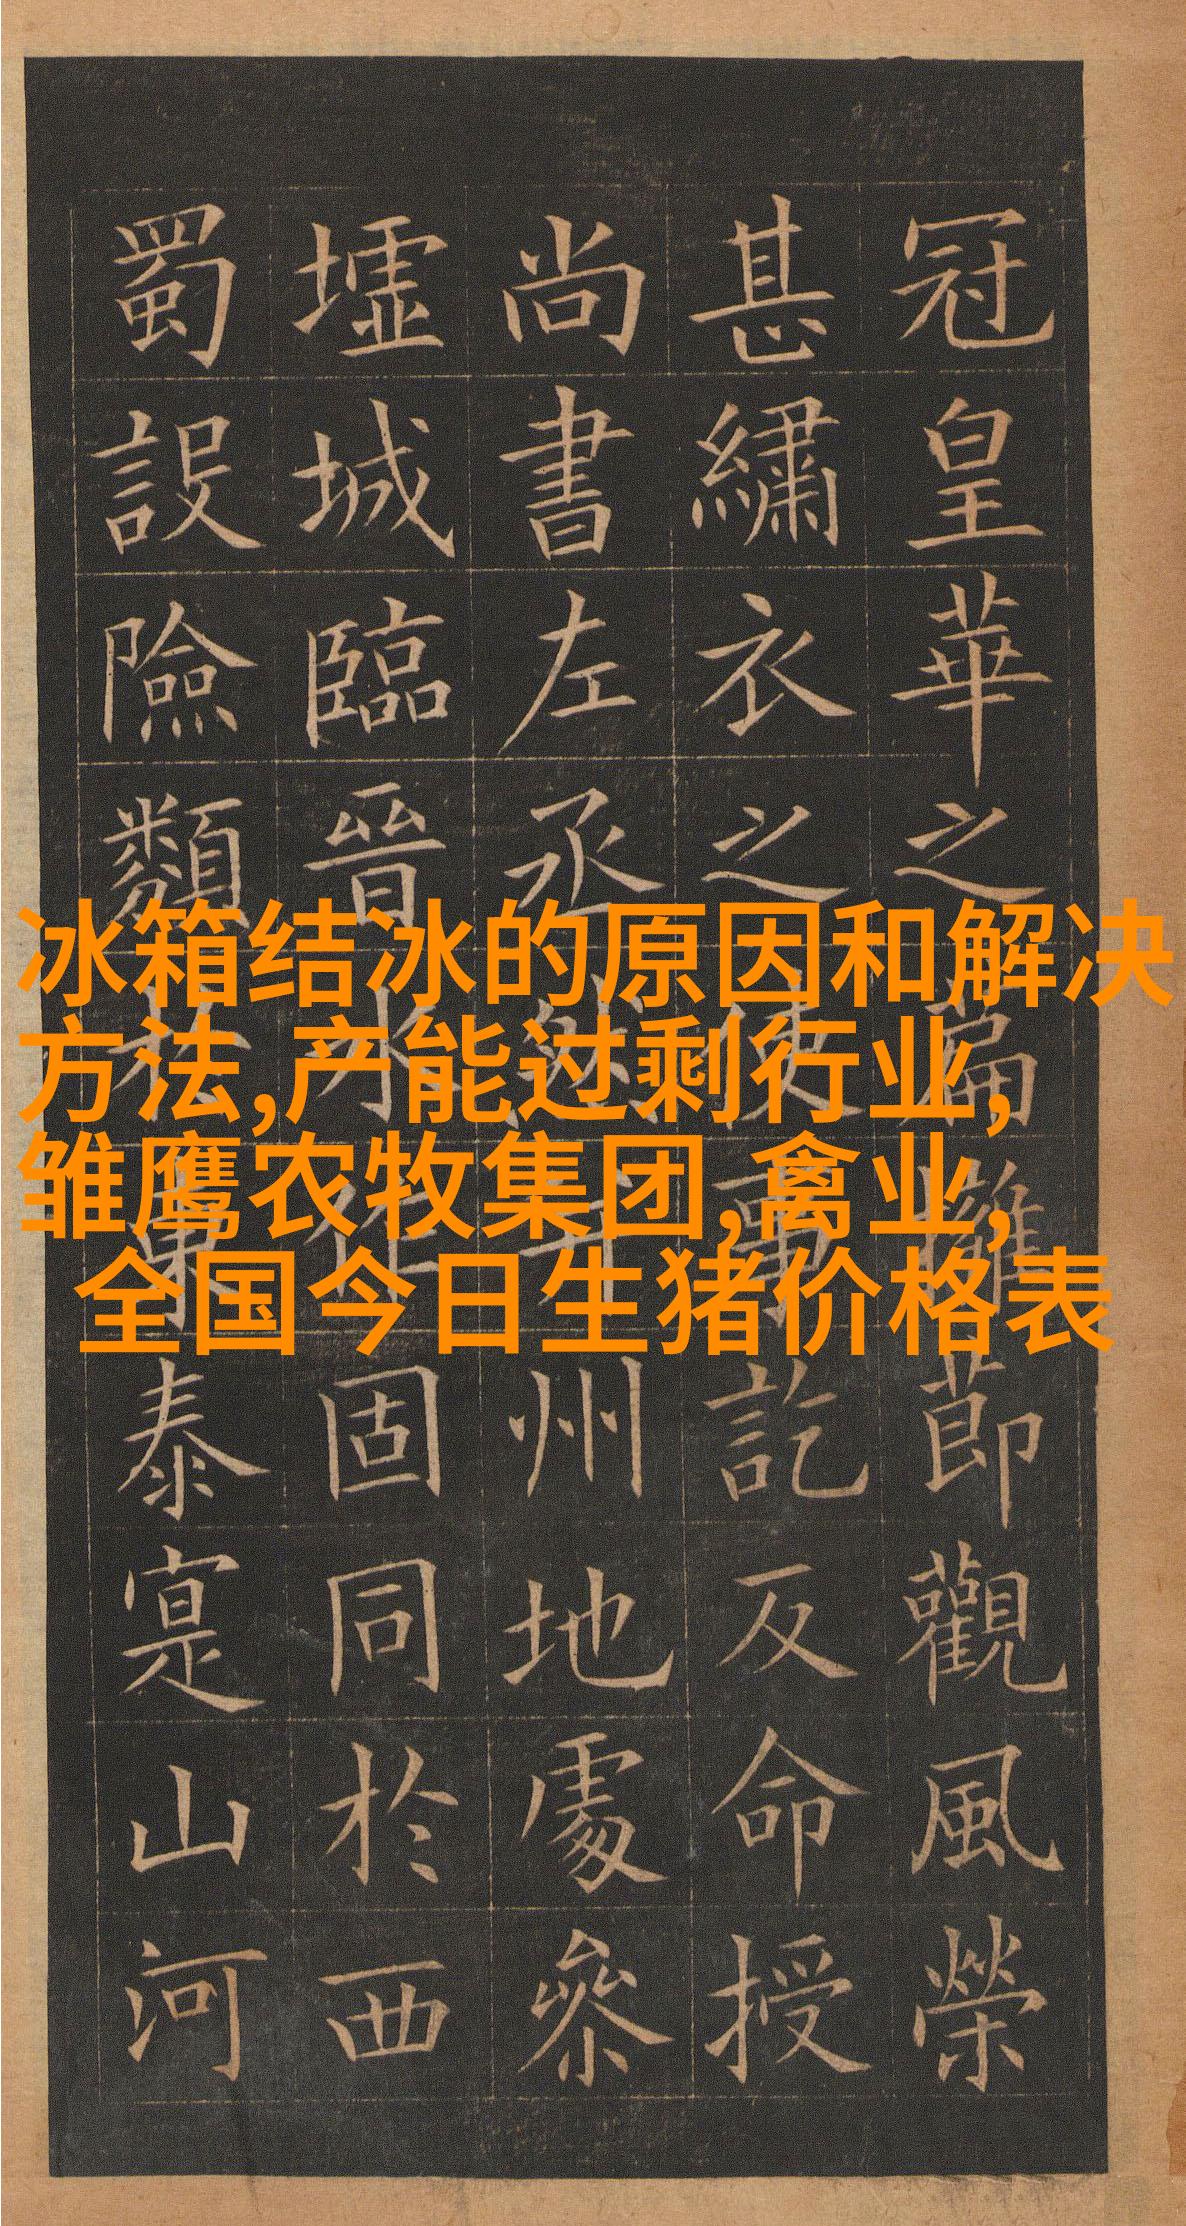 冰箱结冰的原因和解决
方法,产能过剩行业,
雏鹰农牧集团,禽业,
全国今日生猪价格表
冠皇華之篇擁節觀風榮
甚繡衣之使事訖反命授
尚書左丞然并州地處參
墟城臨晉水作固同於西
蜀設險類於東泰寔山河